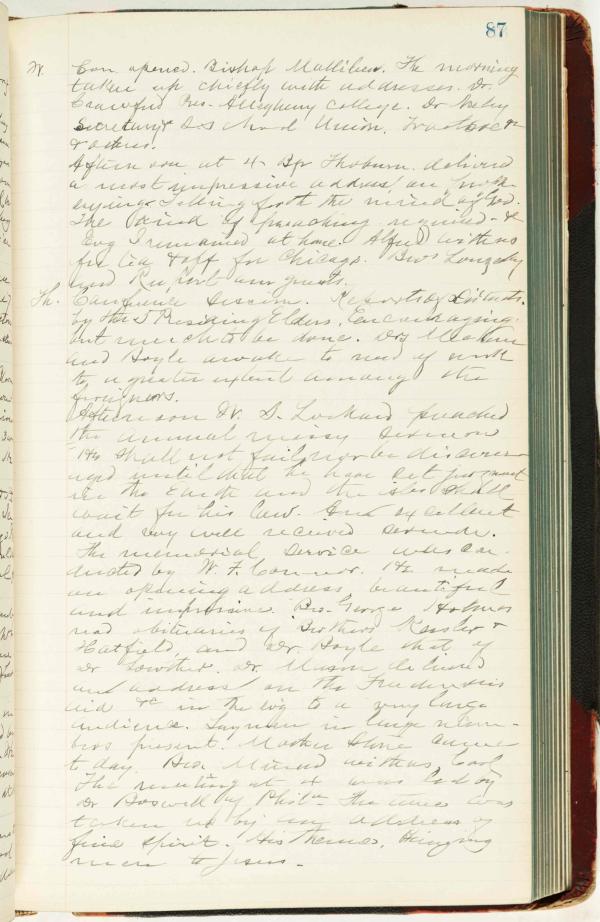 87
W. Con. opened. Bishop Mallilieu. The morning
taken up chiefly with addresses. Dr.
Crawford Pres. Allegheny College. Dr
Secretary S School Union, &c
& others.
Afternoon at 4. Bp Thoburn delivered
a most impressive address on
setting forth the mind of God.
The kind of preaching required. &
Evg I remained at home. Alfred with us
for tea & off for Chicago. Bros
and Rupert our guests.
Th. Conference session. Reports of Districts.
by the 5 Presiding Elders. Encouraging
but much to be done. Drs
and Boyle awake to need of work
to a greater extent among the
foreigners.
Afternoon W. S. Lockard preached
the annual missy sermon
"He shall not fail nor be discour-
aged until that he have set judgment
in the Earth and the isles shall
wait for his law. An excellent
and very well received sermon.
The memorial service was con-
ducted by W. F. Connor. He made
an opening address, beautiful
and impressive. Bro. George Holmes
read obituaries of Brothers Kessler &
Hatfield, and Dr. Boyle that of
Dr Lowther. Dr. Mason delivered
an address on the Freedmens
aid &c in the evg to a very large
audience. Laymen in large num-
bers present. Mother Stone came
today. with us. Cool
The meeting at 4 was led by
Dr Boswell of Phila. The time was
taken up by an address of
fine spirit. His theme, Bringing
men to Jesus -